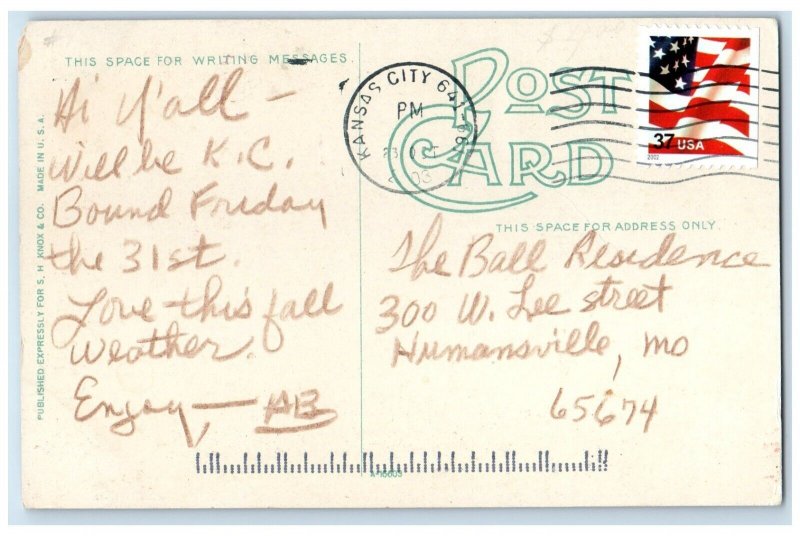 THIS SPACE FOR WRITING MESSAGES.
Hi Y'all –
Will be K.C.
Bound Friday
the 31st.
Love this fall
Weather.
Enjoy — AB
PUBLISHED EXPRESSLY FOR S. H. KNOX & CO. MADE IN U.S.A.
POST CARD
KANSAS CITY
PM
37 USA
2002
THIS SPACE FOR ADDRESS ONLY.
The Ball Residence
300 W. Lee street
Humansville, Mo
65674